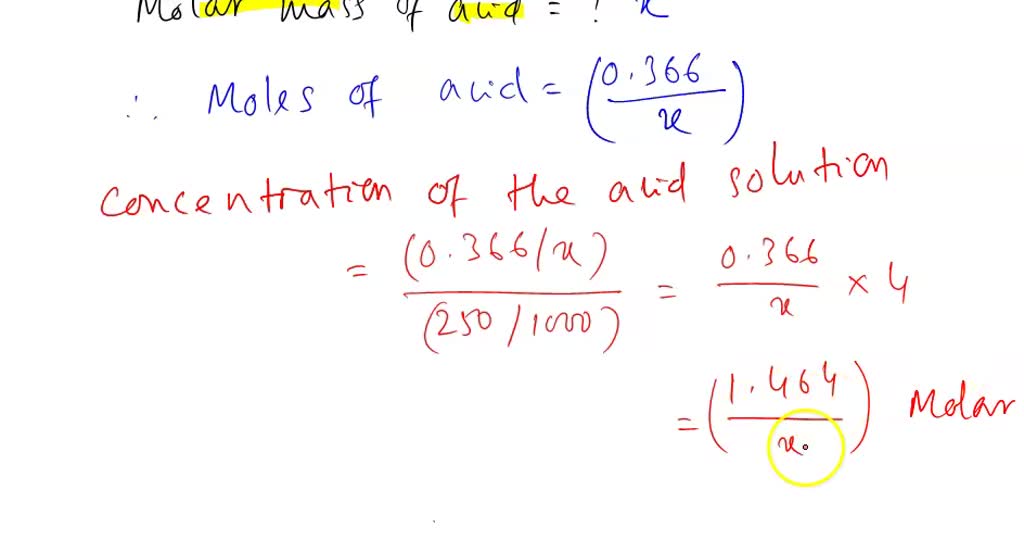 Molar mass of acid = ? x
∴ Moles of acid = (0.366/x)
Concentration of the acid solution
= (0.366/x)/(250/1000) = 0.366/x × 4
= (1.464/x) Molar